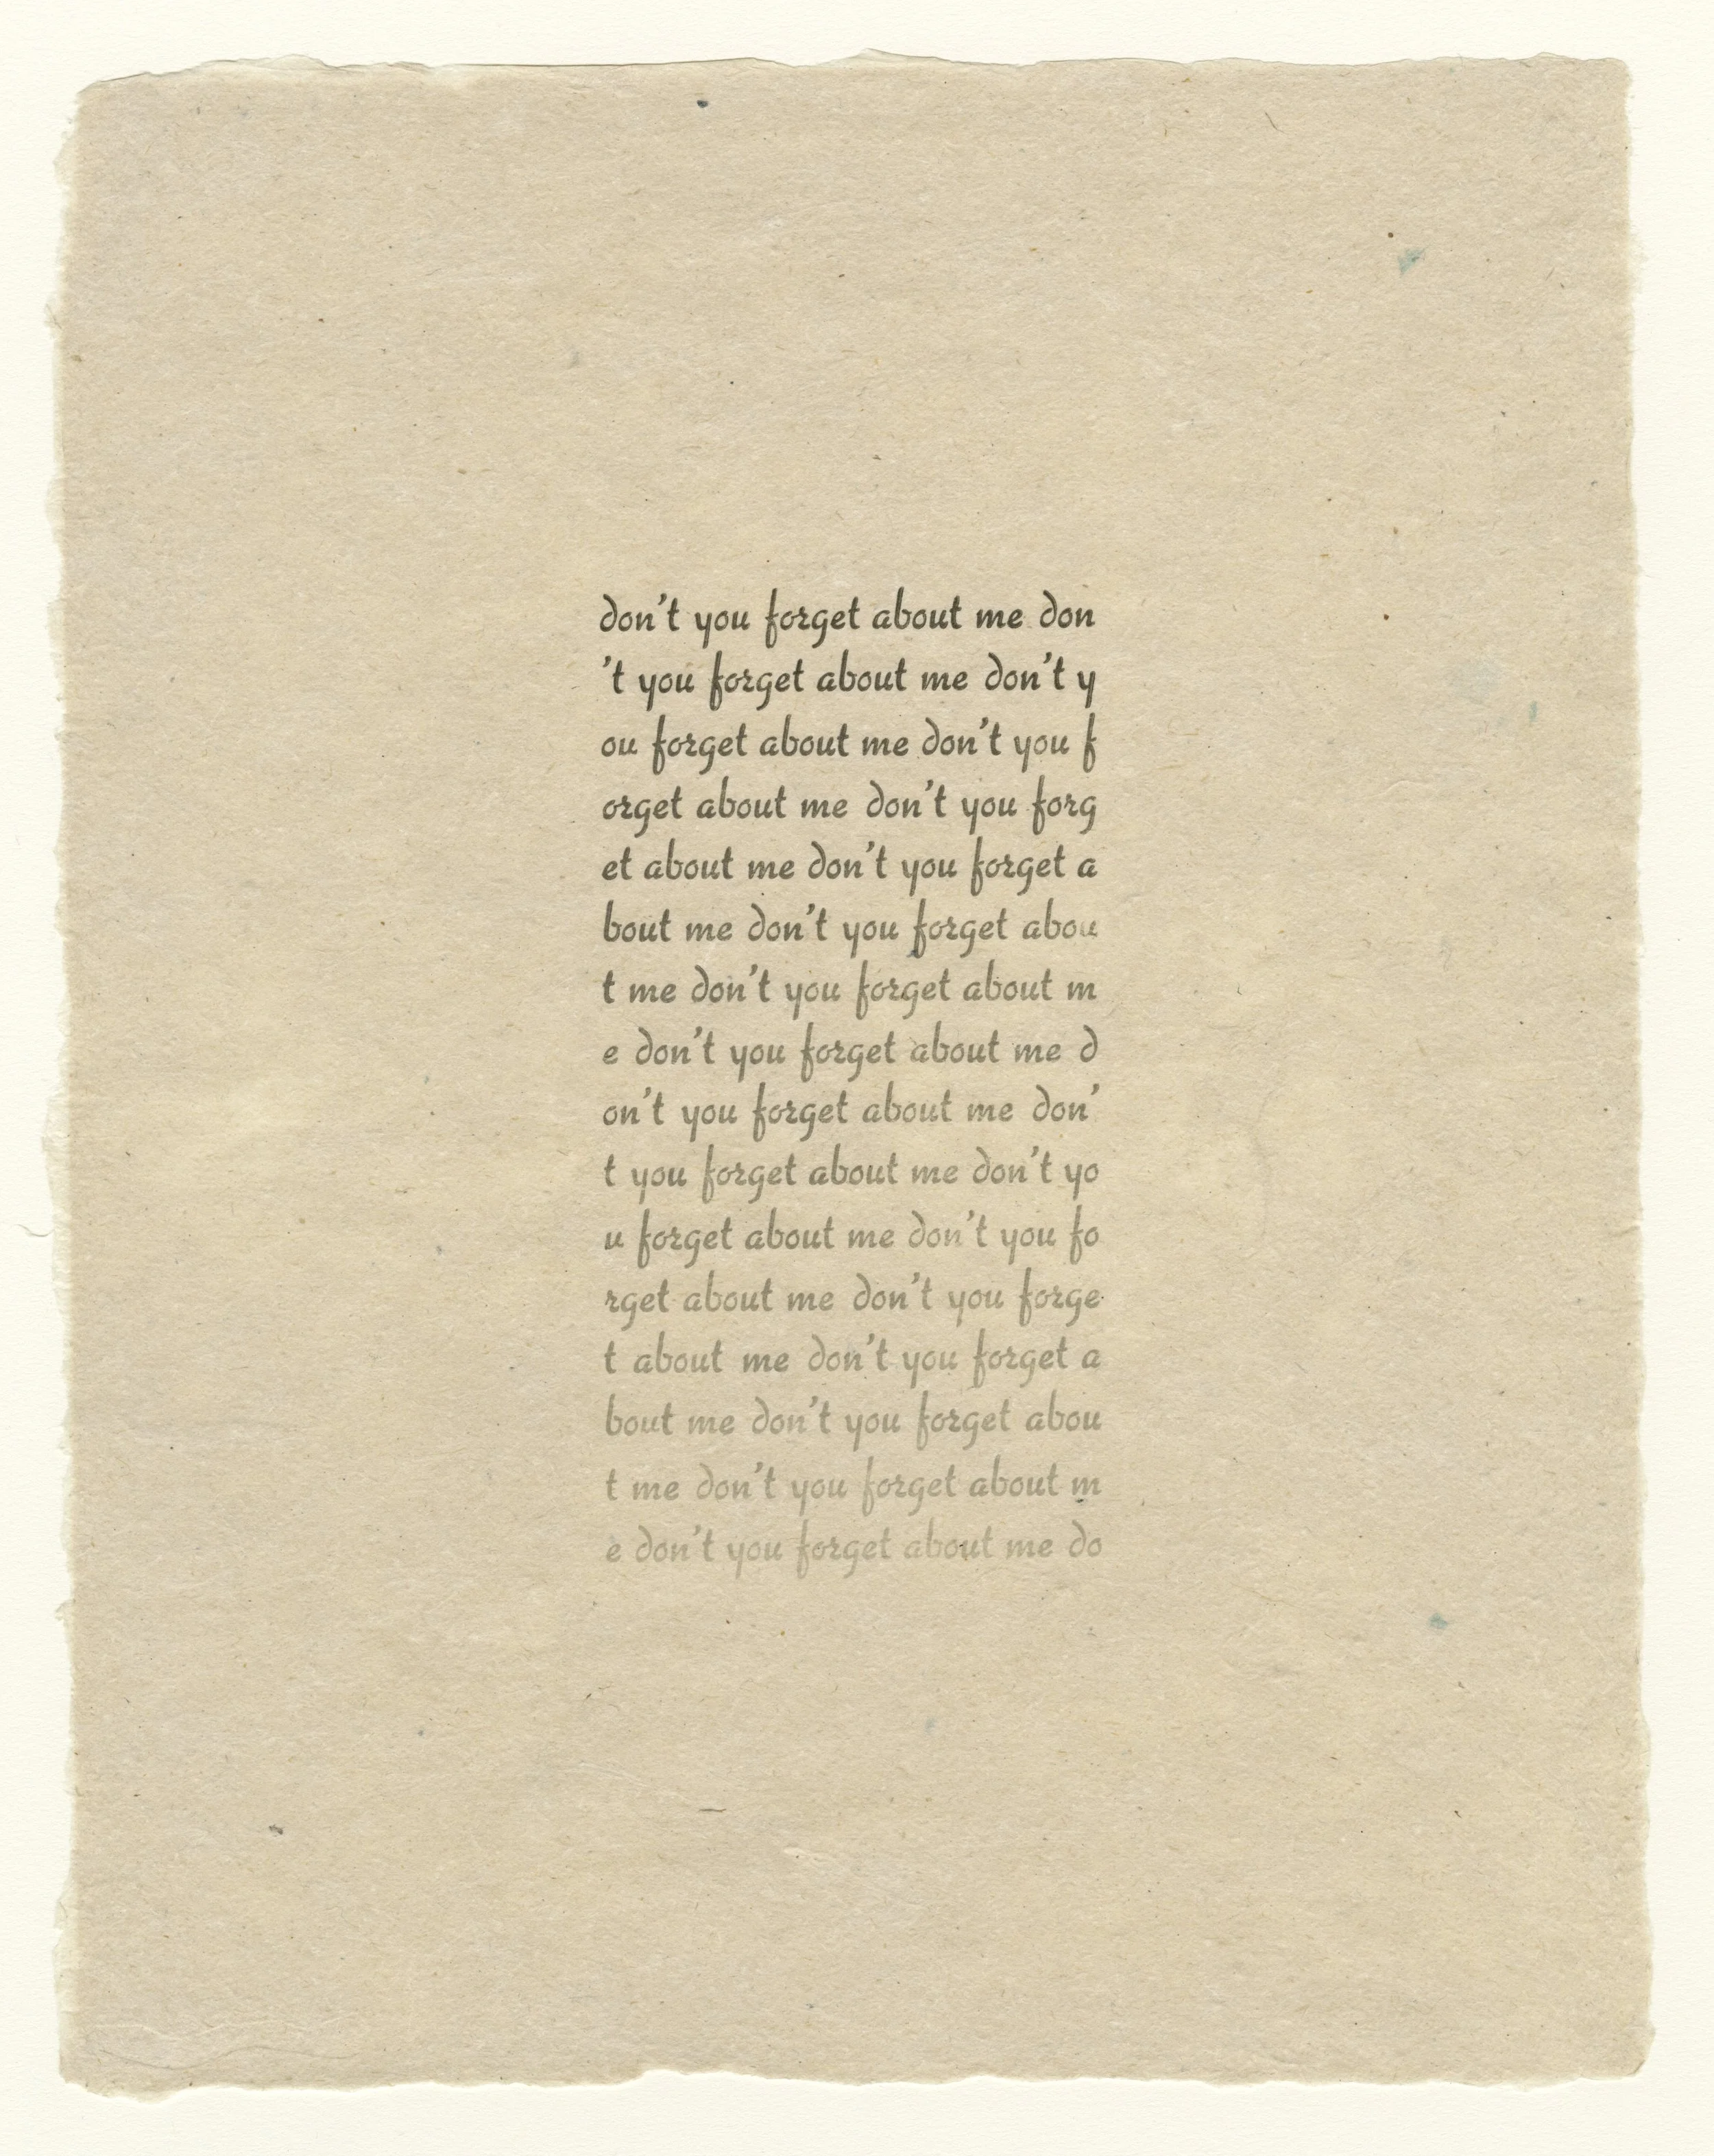 don't you forget about me don
't you forget about me don't y
ou forget about me don't you f
orget about me don't you forg
et about me don't you forget a
bout me don't you forget abou
t me don't you forget about m
e don't you forget about me d
on't you forget about me don'
t you forget about me don't yo
u forget about me don't you fo
rget about me don't you forge
t about me don't you forget a
bout me don't you forget abou
t me don't you forget about m
e don't you forget about me do